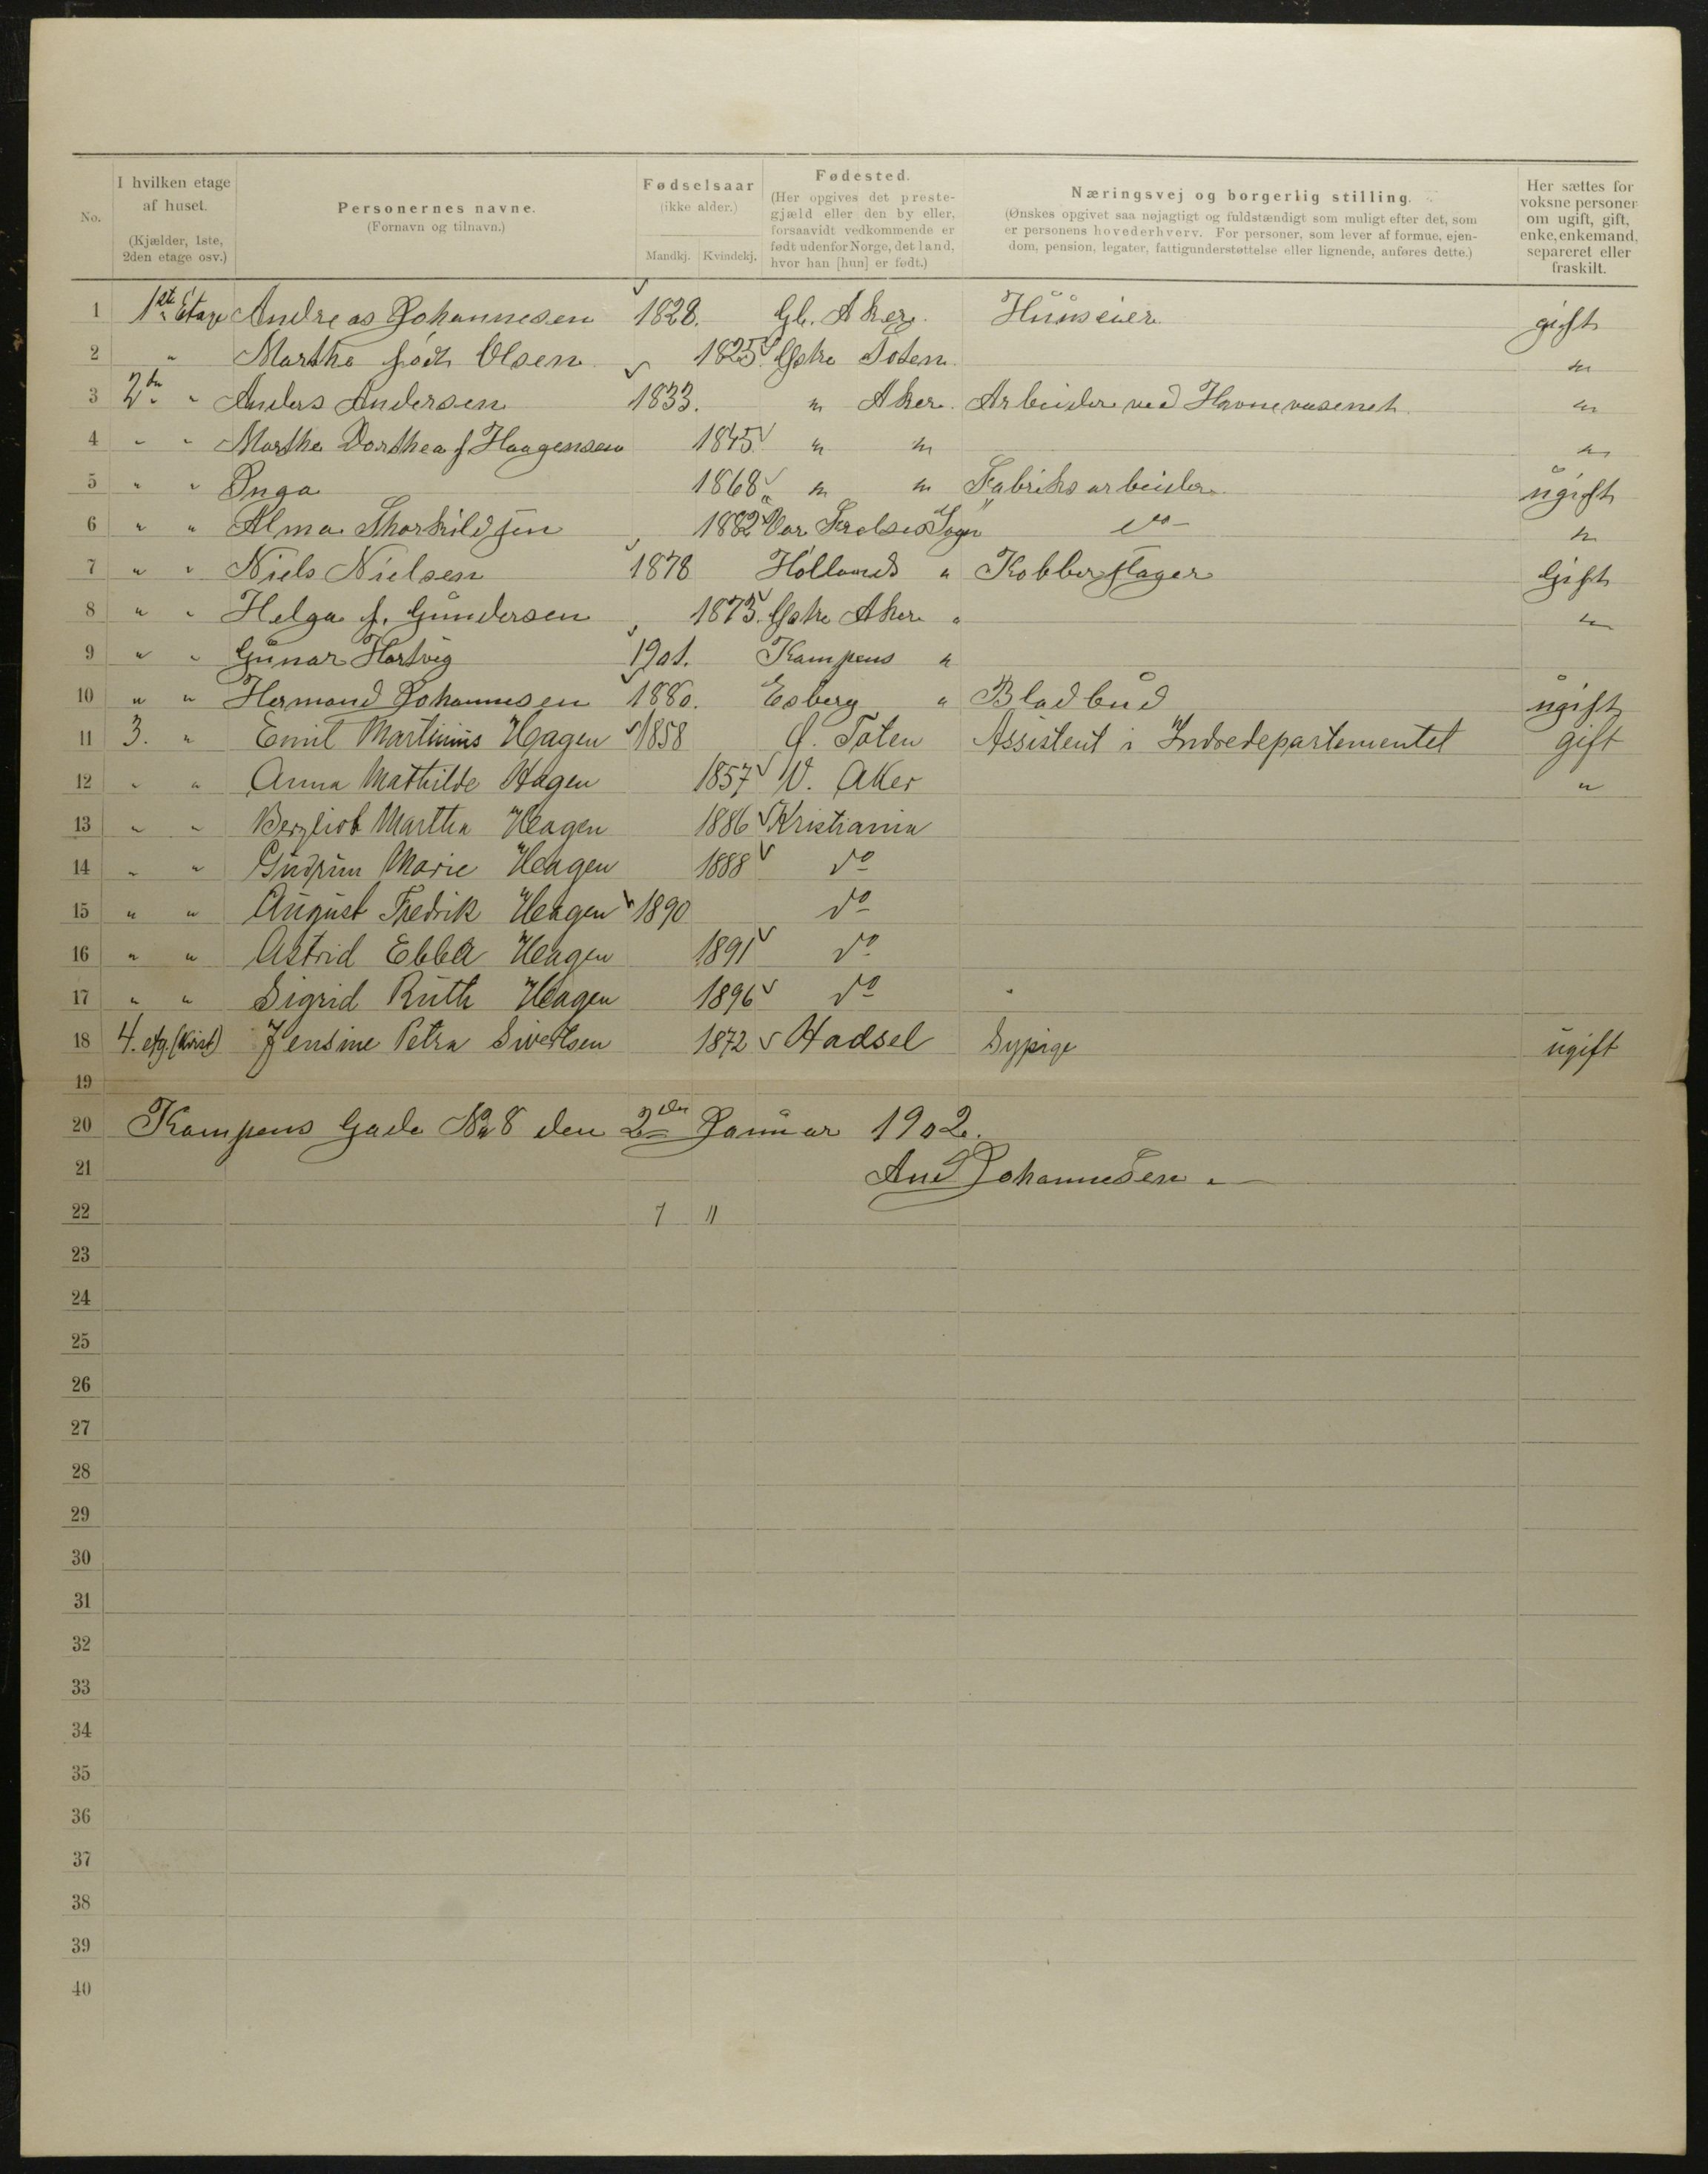 Fødselsaar
Fødested.
I hvilken etage
af huset.
(ikke alder.)
(Her opgives det preste-
gjæld eller den by eller,
forsaavidt vedkommende er
født udenfor Norge, det land,
hvor han [hun] er født.)
Næringsvej og borgerlig stilling.
(Ønskes opgivet saa nøjagtigt og fuldstændigt som muligt efter det, som
er personens hovederhverv. For personer, som lever af formue, ejen-
dom, pension, legater, fattigunderstøttelse eller lignende, anføres dette.)
Her sættes for
voksne personer
om ugift, gift,
enke, enkemand,
separeret eller
fraskilt.
No.
Personernes navne.
(Fornavn og tilnavn.)
(Kjælder, 1ste,
2den etage osv.)
Mandkj. Kvindekj.
1 1ste Etage Andreas Johannesen 1828. Gl. Aker. Huuseier gift
2 " Marthe født Olsen 1825. Østre Toten "
3 2den " Anders Andersen 1833. " Aker. Arbeider ved Havnevæsenet "
4 " " Marthe Dorthea f Haagensen 1845 " " "
5 " " Inga 1868 " " Fabriksarbeider ugift
6 " " Alma Thorkildsen 1882 Vor Frelsers Sogn do "
7 " " Niels Nielsen 1878 " Kobberslager Gift
8 " " Helga f. Gundersen 1873. Østre Aker " "
9 " " Gunar Hartvig 1901. Kampens "
10 " " Hermand Johannesen 1880. Esberg " Bladbud ugift
11 3. " Emil Martinius Hagen 1858 Ø. Toten Assistent i Indredepartementet gift
12 " " Anna Mathilde Hagen 1857 V. Aker "
13 " " Bergliot Martha Hagen 1886 Kristiania
14 " " Gudrun Marie Hagen 1888 do
15 " " August Fredrik Hagen 1890 do
16 " " Astrid Ebba Hagen 1891 do
17 " " Sigrid Ruth Hagen 1896 do
18 4. etg. (Kvist) Jensine Petra Sivertsen 1872 Hadsel Sypige ugift
19
20 Kampens Gade No 8 den 2den Januar 1902.
21 And Johannesen
22 7 11
23
24
25
26
27
28
29
30
31
32
33
34
35
36
37
38
39
40